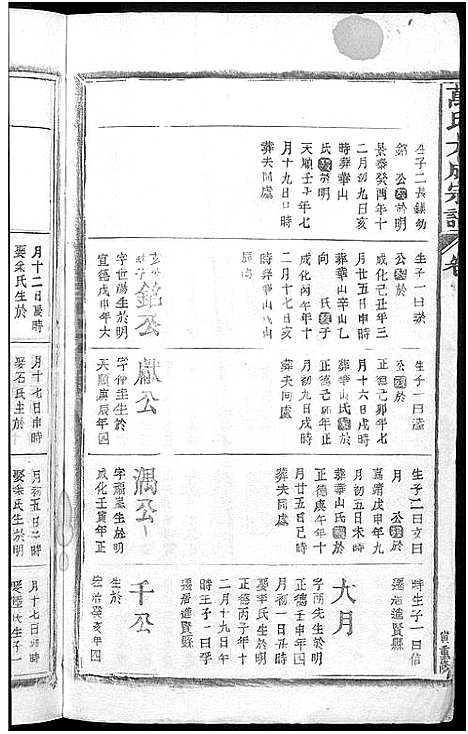 萬氏大成宗譜
卷
生子二長鎂幼
銘公歿於明
景泰癸酉年十
二月初九日亥
時葬華山
氏歿於明
天順壬午年七
月十九日巳時
葬夫同處
生子一曰獻
公歿於
成化己丑年三
月廿五日申時
葬華山辛山乙
向氏歿于
成化丙午年十
二月十七日亥
時葬華山
銘公
字世暘生於明
宣德戊申年六
月十二日辰時
娶余氏生於
生子一曰
公歿於
正德己卯年七
月十六日戌時
葬華山氏歿於
正德己卯年正
月初九日戌時
葬夫同處
獻公
字伊圭生於
天順庚辰年四
月十七日申時
娶石氏生於
生子二曰文曰
月公歿於
嘉靖戊申年九
月初五日未時
葬華山氏歿於
正德庚午年十
月廿五日巳時
葬夫同處
公
生於明
成化壬寅年正
月初五日巳時
娶余氏生於明
時生子一曰信
遷居進賢縣
大月
字南先生於明
正德壬申年四
月初一日丑時
娶李氏生於明
正德丙子年十
二月十九日午
時生子一曰孚
遷居進賢縣
千公
生於
弘治癸亥年四
月十七日時